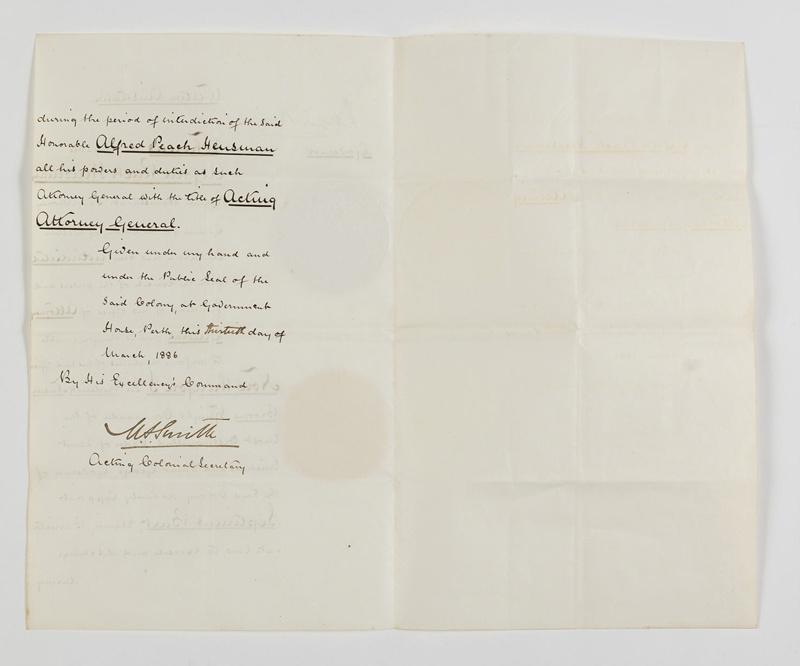 during the period of interdiction of the said
Honorable Alfred Peach Hensman
all his powers and duties as such
Attorney General with the title of Acting
Attorney General.
Given under my hand and
under the Public Seal of the
said Colony, at Government
House, Perth, this thirtieth day of
March, 1886
By His Excellency's Command
M.S. Smith
Acting Colonial Secretary